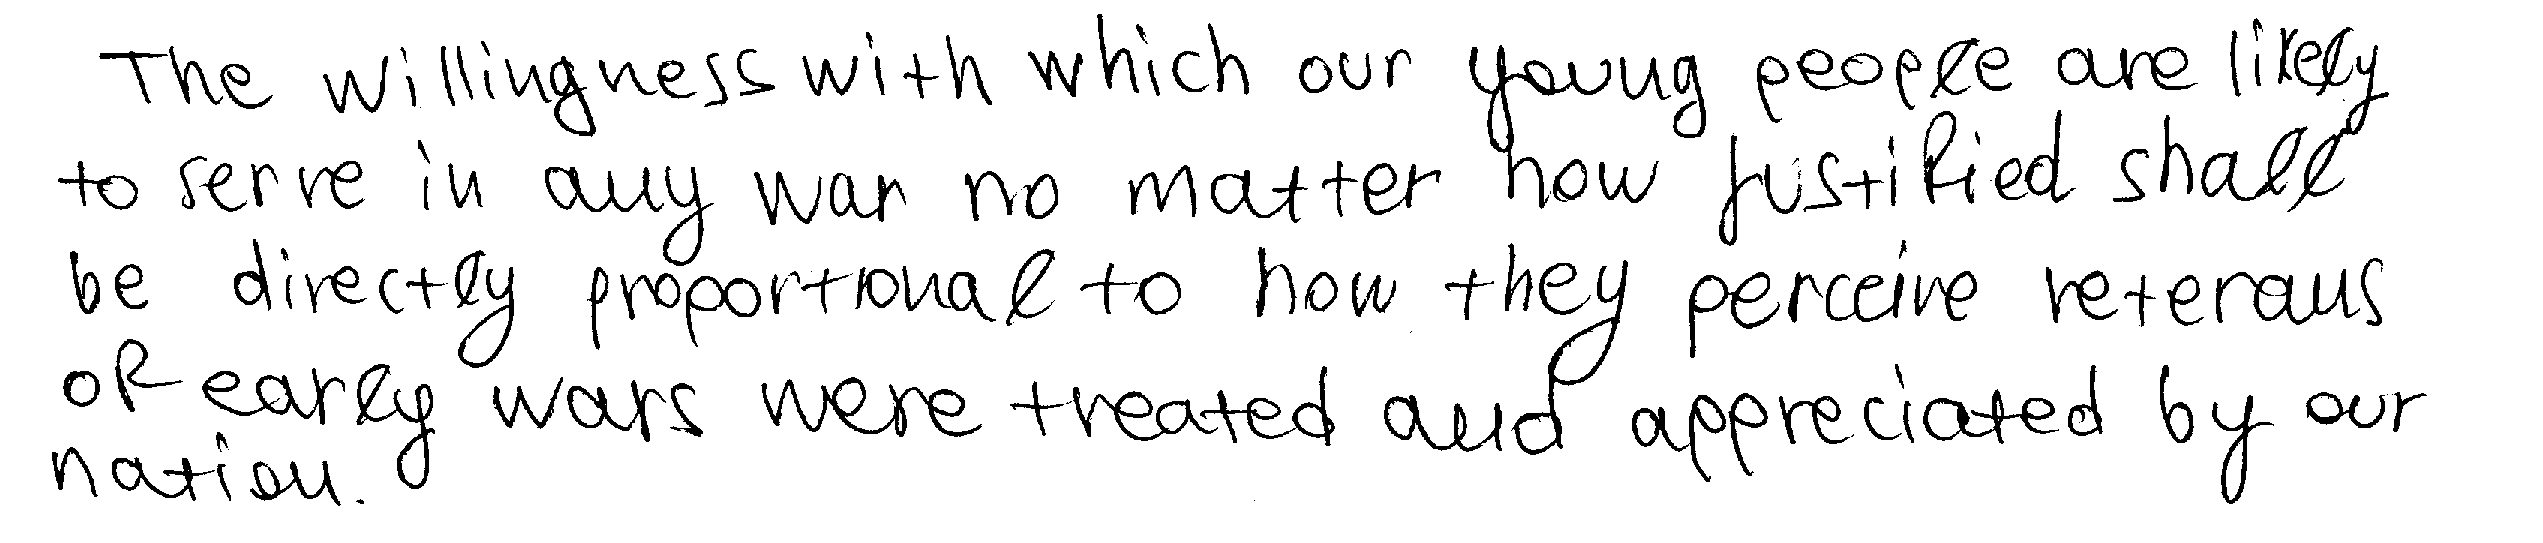 The willingness with which our young people are likely
to serve in any war no matter how justified shall
be directly proportional to how they perceive veterans
of early wars were treated and appreciated by our
nation.